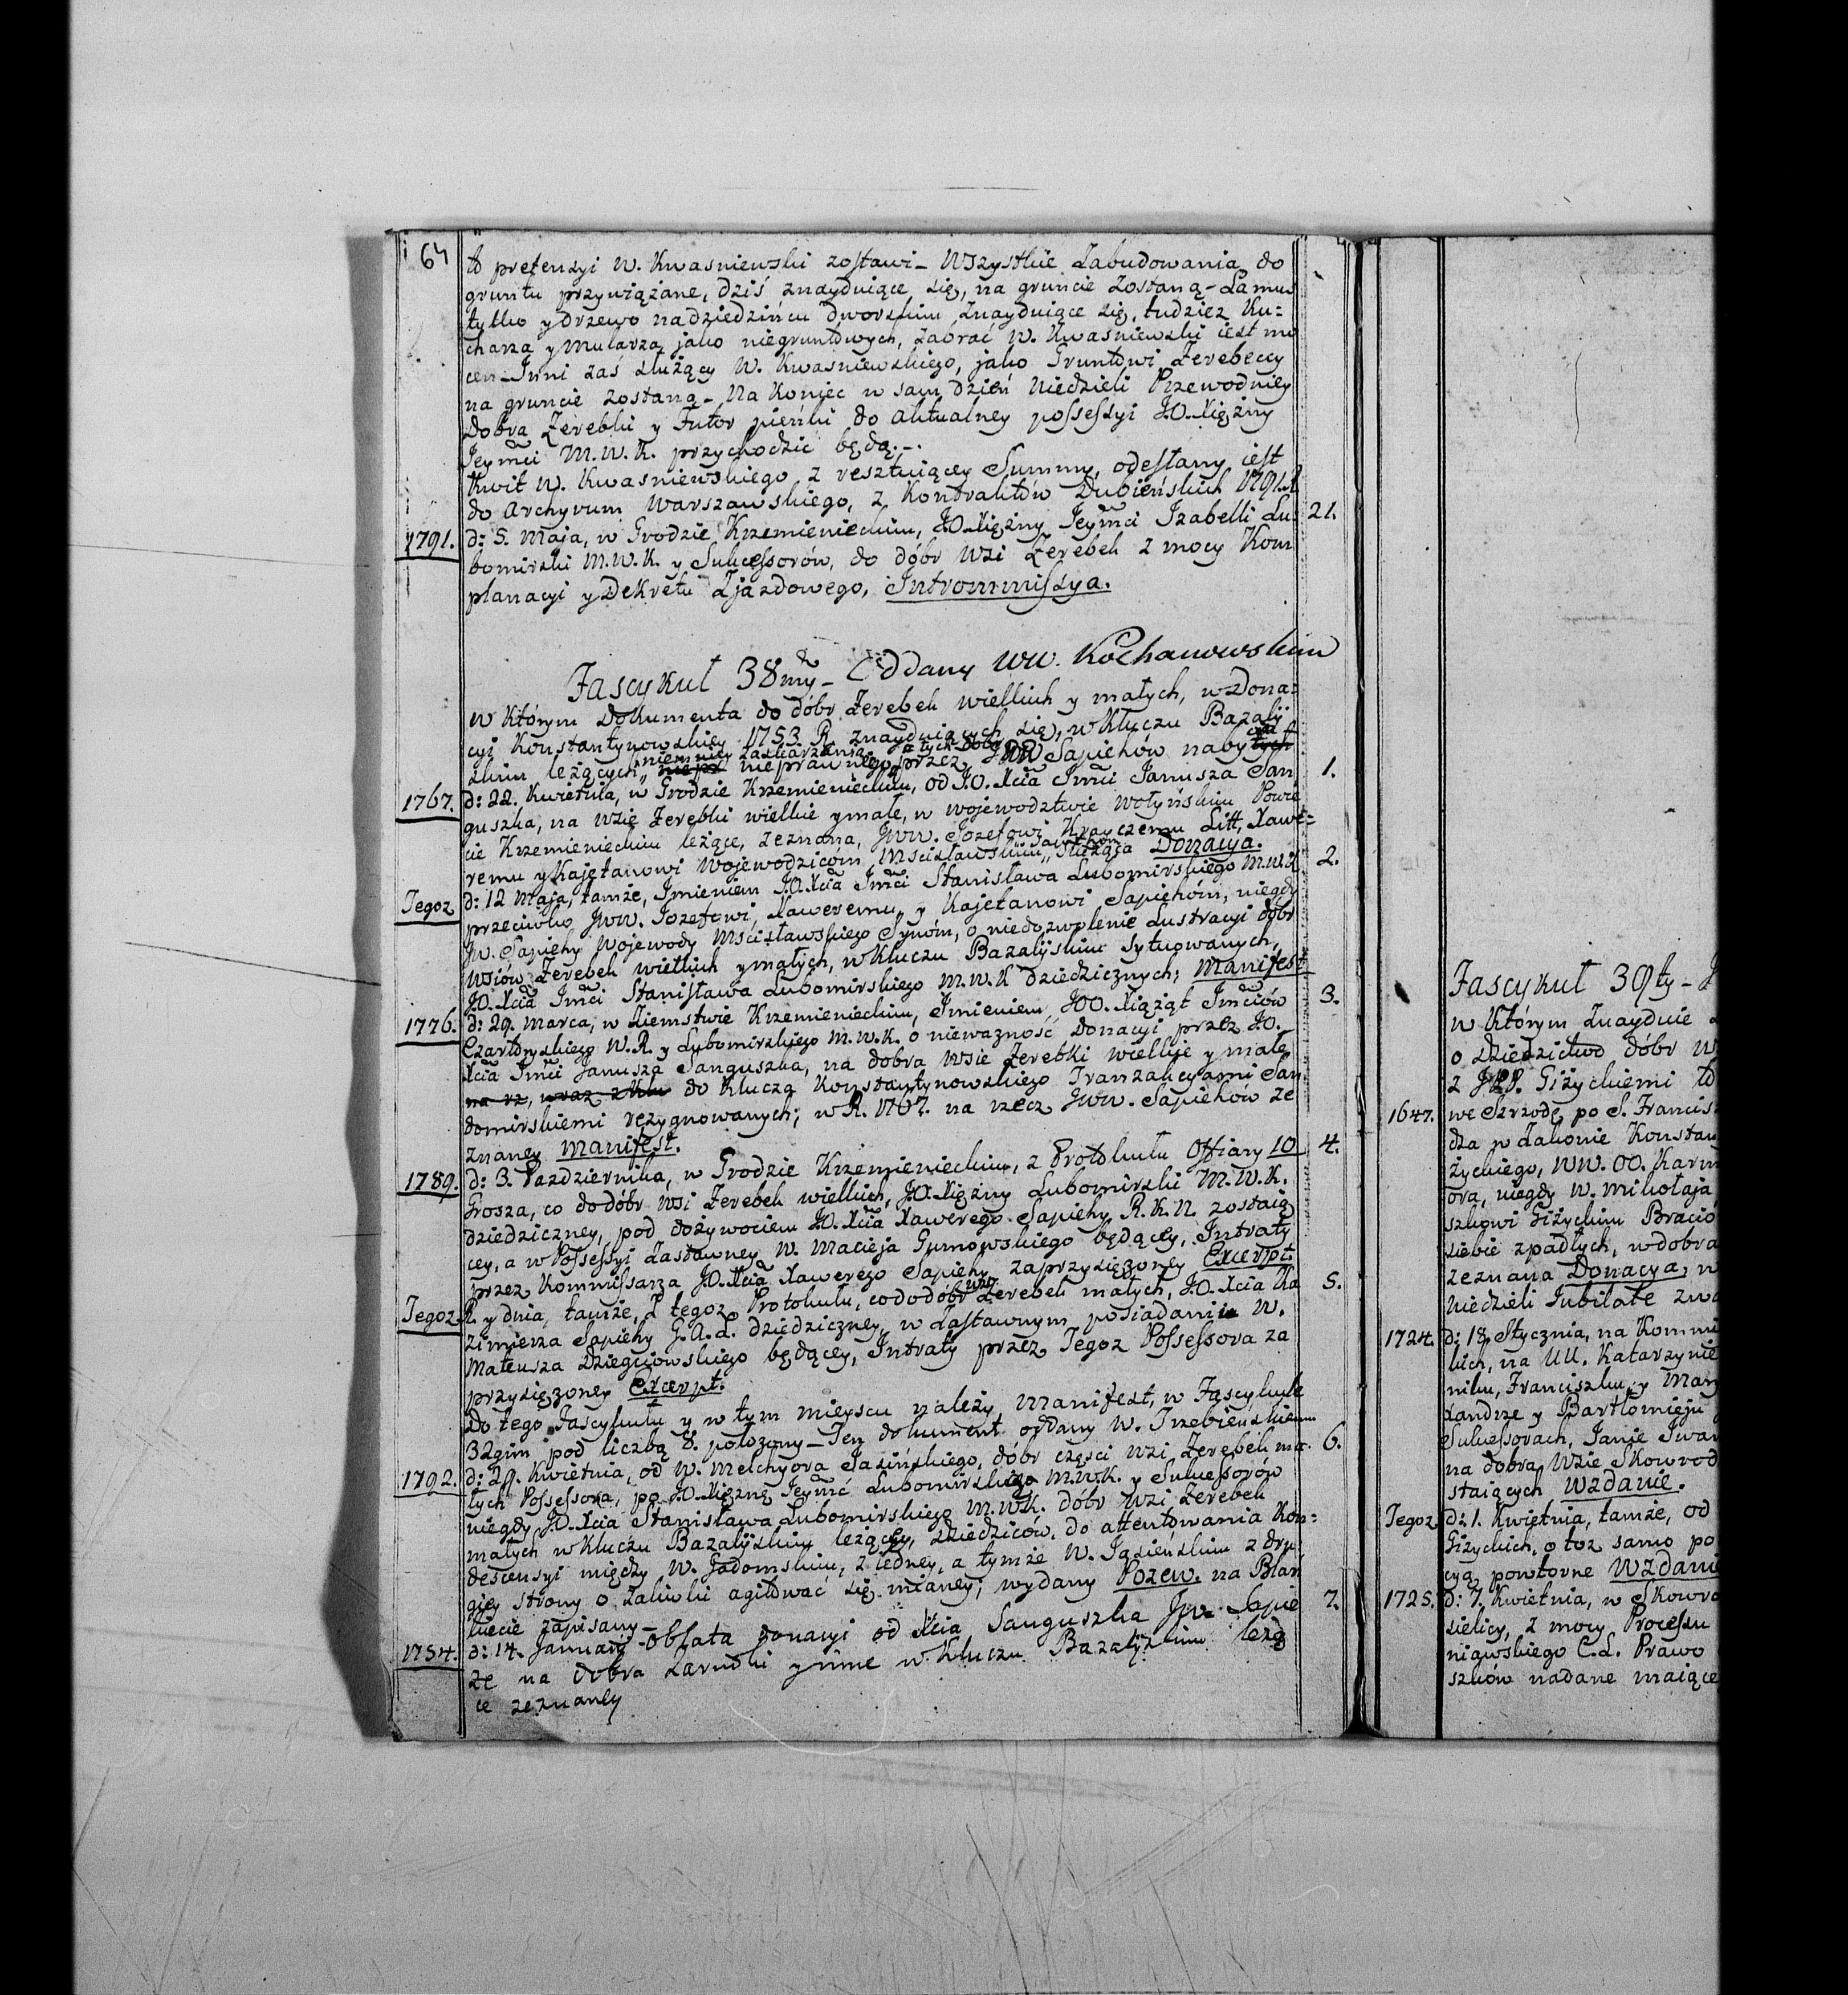 64
to pretensyi W. Kwasniewski zostawi_ Wszystkie Zabudowania do
gruntu przywiązane, dziś znayduiące się, na gruncie zostaną_ Lamus
tylko y drzewo na dziedzińcu dworskim znayduiące się, tudziez Ku=
charza y Mularza, jako niegruntowych, zabrać W. Kwasniewski iest mo
cen_ Inni zaś służący W. Kwasniewskiego, jako Gruntowi Zerebeccy
na gruncie zostaną_ Na koniec w sam dzień Niedzieli Przewodniey
Dobra Zerebki y Futor pieńki do aktualney possessyi J.O. Xiężny
Jeymci M.W.K. przychodzić będą._.
Kwit W. Kwasniewskiego z resztuiącey Summy, odesłany iest
do Archyvum Warszawskiego, z Kontraktów Dubieńskich 1791.R
1791. d: 5. Maja, w Grodzie Krzemienieckim, J.O. Xiężny Jeymci Izabelli Lu= 21.
bomirski M.W.K. y Sukcessorów, do dóbr Wsi Zerebek z mocy Kom
planacyi y Dekretu Zjazdowego, Intrommissya.
Fascykuł 38my_ Oddany WW. Kochanowskim
w którym Dokumenta do dóbr Zerebek wielkich y małych, w Dona=
cyi Konstantynowskiey 1753. R. znayduiących się, w Kluczu Bazaliy
niemniey zaskarżenia a tych dóbr cia
skim leżących, niepr nieprawnego przez JWW Sapiehów nabytych
1767. d: 22. Kwietnia, w Grodzie Krzemienieckim, od J.O. Xcia Jmci Janusza San 1.
guszka, na wsie Zerebki wielkie y małe, w wojewodztwie wołyńskim Powie
cie Krzemienieckim leżące, zeznana, JWW. Jozefowi Krayczemu Litt, Xawe=
remu y Kajetanowi Wojewodzicom Mscisławskim, służąca Donacya.
Tegoz d: 12 Maja, tamże, Jmieniem J.O. Xcia Jmci Stanisława Lubomirskiego M.W.K. 2.
przeciwko JWW. Jozefowi, Xaweremu, y Kajetanowi Sapiehom, niegdy
JW. Sapiehy Wojewody Mścisławskiego Synom, o niedozwolenie Lustracyi dóbr
Wsiów Zerebek wielkich y małych, w Kluczu Bazaliyskim sytuowanych,
J.O. Xcia Jmci Stanisława Lubomirskiego M.W.K dziedzicznych; Manifest
1776. d: 29. Marca, w Ziemstwie Krzemienieckim, Jmieniem JOO. Xiążąt Jmciów 3.
Czartoryskiego W.R. y Lubomirskiego M.W.K. o nieważność Donacyi przez J.O.
Xcia Jmci Janusza Sanguszka, na dobra Wsie Zerebki wielkie y małe
na rz, wraz z Klu do Klucza Konstantynowskiego Tranzakcyami San
domirskiemi rezygnowanych; w R. 1767. na rzecz JWW. Sapiehów ze
znaney Manifest.
1789. d: 3. Pazdziernika, w Grodzie Krzemienieckim, z Protokułu Offiary 10 4.
Grosza, co do dóbr Wsi Zerebek wielkich, J.O. Xiężny Lubomirski M.W.K.
dziedziczney, pod dożywociem J.O. Xcia Xawerego Sapiehy R.K.N. zostaią
cey, a w Possessyi Zastawney W. Macieja Gumowskiego będącey, Intraty
przez Kommissarza J.O. Xcia Xawerego Sapiehy zaprzysiężoney Excerpt.
Tegoz R. y dnia, tamże, z tegoz Protokułu, co do dóbr wsi Zerebek małych, J.O. Xcia Ka 5.
zimierza Sapiehy G.A.L. dziedziczney, w Zastawnym posiadaniu W.
Mateusza Dzieguiowskiego będącey, Intraty przez Tegoz Possessora za
przysiężoney Excerpt.
Do tego Fascykułu y w tym mieyscu należy Manifest, w Fascykule
32gim pod liczbą 8. położony_ Ten dokument oddany W. Trzebienskiemu
1792. d: 29. Kwietnia, od W. Melchyora Jasińskiego, dóbr częsci Wsi Zerebek ma 6.
łych Possessora, po J.O. Xiężnę Jeymć Lubomirską M.W.K. y Sukcessorów
niegdy J.O. Xcia Stanisława Lubomirskiego M.W.K. dóbr Wsi Zerebek
małych w Kluczu Bazaliyskim leżącey, dziedziców, do attentowania Kon=
descensyi między W. Gadomskim, z iedney, a tymże W. Jasienskim z dru
giey strony o Zaliwki agitować się mianey; wydany Pozew. na Blan
kiecie zapisany_
1754. d: 14. Januarij Oblata donacyi od Xcia Sanguszka JW. Sapie 7.
ze na dobra Zarudki y inne w Kluczu Bazaliyskim leżą
ce zeznaney
Fascykuł 39ty_
w którym znayduie
o dziedzictwo dóbr W
z JPP. Giżyckiemi to
1647. we Srzodę po S. Francisz
dza w Zakonie Konstan
życkiego, WW. OO. Karm
ora, niegdy W. Mikołaja
szkowi Giżyckim Bracio
siebie spadłych, w dobra
zeznana Donacya, w
Niedzieli Jubilate zwa
1724. d: 18. Stycznia, na Kommi
kich, na UU. Katarzynie
niku, Franciszku, y Mary
xandrze y Bartłomieju
Sukcessorach, Janie Iwan
na dobra Wsie Skowrod
staiących Wzdanie.
Tegoz d: 1. Kwietnia, tamże, od
Giżyckich, o toz samo po
cyą powtorne Wzdani
1725. d: 7. Kwietnia, w Skowro
sielicy, z mocy Processu
nigwskiego C.L. Prawo
szków nadane maiące